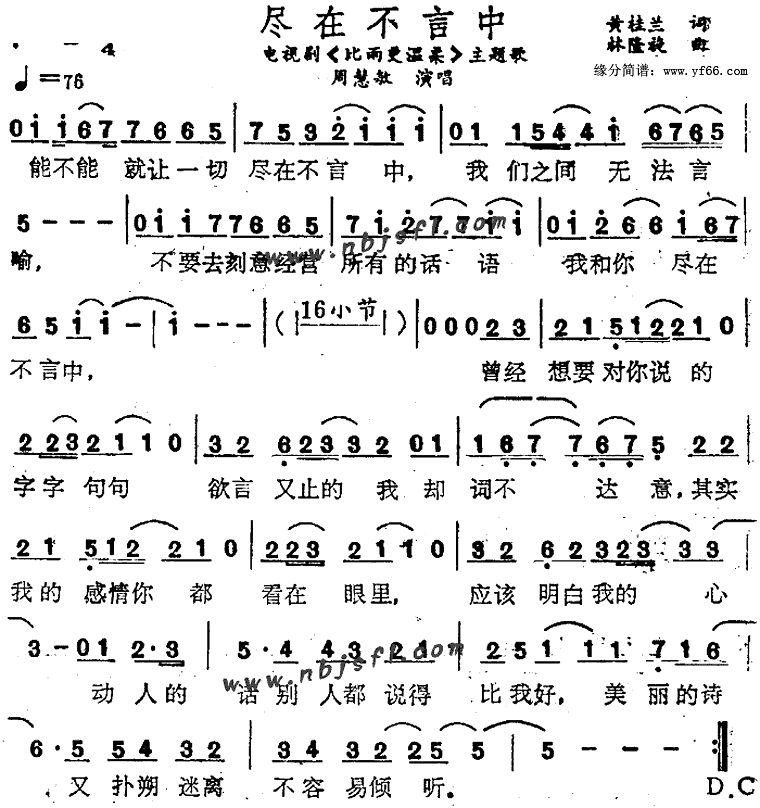 尽在不言中
黄桂兰 词
林隆璇 曲
电视剧《比雨更温柔》主题歌
周慧敏 演唱
缘分简谱：www.yf66.com
4
♩=76
0i i67 7665 | 753 2 i i i | 01 1544 4i 6765 |
能不能 就让一切 尽在不言 中， 我 们之间 无法言
5 - - - | 0ii77665 | 7i277ii | 0i266i67 |
喻， 不要去刻意经营 所有的话 语 我和你 尽在
www.nbjsfl.com
65ii - | i - - - | (|16小节|) | 00023 | 21512210 |
不言中， 曾经 想要对你说的
22321 10 | 32 623 32 01 | 167 767 5 22 |
字字 句句 欲言 又止的 我 却 词不 达 意，其实
21 512 210 | 223 2110 | 32 62323 33 |
我的 感情你 都 看在 眼里， 应该 明白我的 心
3 - 01 2·3 | 5·4 43 21 | 251 11 7 16 |
动 人的 话 别 人都 说得 比我好， 美 丽的诗
www.nbjsfl.com
6·5 54 32 | 34 32 25 5 | 5 - - :‖
又 扑朔 迷离 不容 易倾 听。 D.C